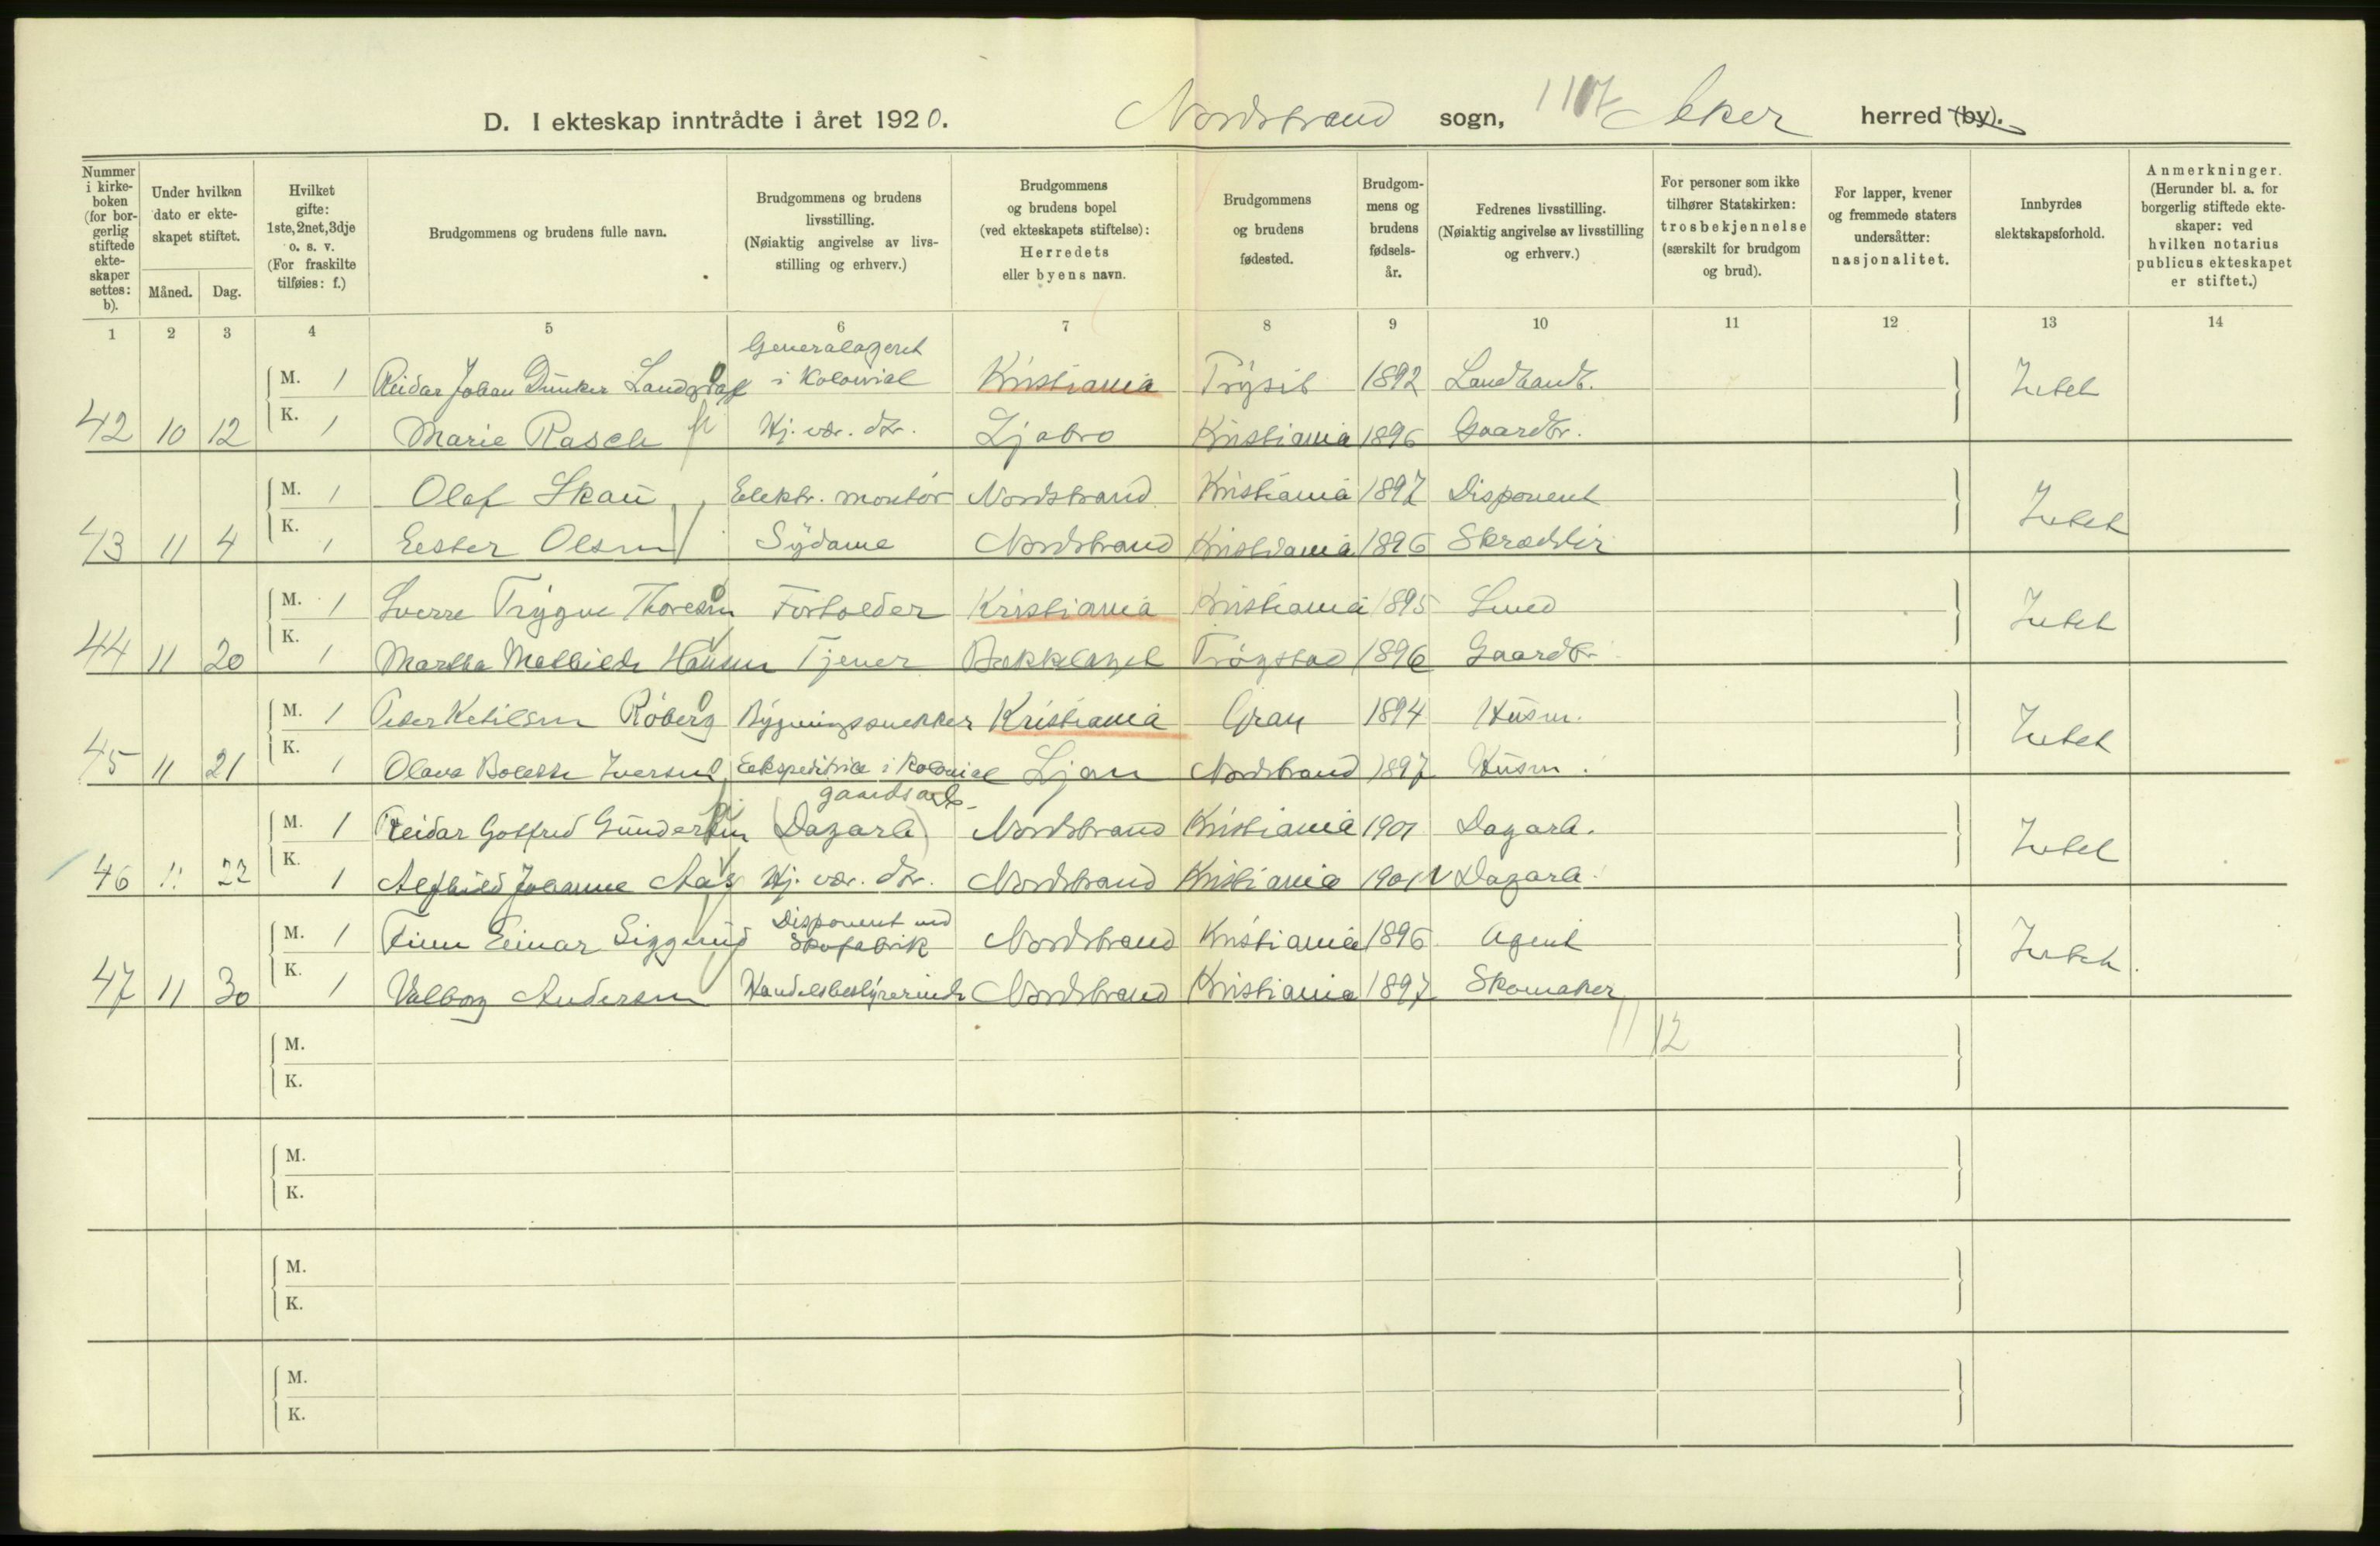 D. I ekteskap inntrådte i året 1920. Nordstrand sogn, 1107 Aker herred (by).
Nummer i kirkeboken (for borgerlig stiftede ekteskaper settes: b).
Under hvilken dato er ekteskapet stiftet.
Måned. Dag.
Hvilket gifte: 1ste, 2net, 3dje o. s. v. (For fraskilte tilføies: f.)
Brudgommens og brudens fulle navn.
Brudgommens og brudens livsstilling. (Nøiaktig angivelse av livsstilling og erhverv.)
Brudgommens og brudens bopel (ved ekteskapets stiftelse): Herredets eller byens navn.
Brudgommens og brudens fødested.
Brudgommens og brudens fødselsår.
Fedrenes livsstilling. (Nøiaktig angivelse av livsstilling og erhverv.)
For personer som ikke tilhører Statskirken: trosbekjennelse (særskilt for brudgom og brud).
For lapper, kvener og fremmede staters undersåtter: nasjonalitet.
Innbyrdes slektskapsforhold.
Anmerkninger. (Herunder bl. a. for borgerlig stiftede ekteskaper: ved hvilken notarius publicus ekteskapet er stiftet.)
1 2 3 4 5 6 7 8 9 10 11 12 13 14
M. 1 Reidar Johan Dunker Landgraff Generalagent i Kolonial Kristiania Trysil 1892 Landhandl. Intet
42 10 12 K. 1 Marie Rasch Hj. vær. dtr. Ljabro Kristiania 1896 Gaardbr.
M. 1 Olaf Skau Elektr. montør Nordstrand Kristiania 1897 Disponent Intet
43 11 4 K. 1 Ester Olsen Sydame Nordstrand Kristiania 1896 Skrædder
M. 1 Sverre Trygve Thoresen Forholder Kristiania Kristiania 1895 Smed Intet
44 11 20 K. 1 Martha Mathilde Hansen Tjener Bækkelaget Trøgstad 1896 Gaardbr.
M. 1 Peter Ketilsen Røberg Bygningssnekker Kristiania Gran 1894 Husm. Intet
45 11 21 K. 1 Olava Bolette Iversen Ekspeditrice i Kolonial Ljan Nordstrand 1897 Husm.
M. 1 Reidar Gotfred Gundersen gaardsarb. (Dagarb) Nordstrand Kristiania 1901 Dagarb. Intet
46 11 22 K. 1 Alfhild Johanne Aas Hj. vær. dtr. Nordstrand Kristiania 1901 Dagarb.
M. 1 Finn Einar Siggerud Disponent ved Skofabrik Nordstrand Kristiania 1896 Agent Intet.
47 11 30 K. 1 Valborg Andersen Handelsbestyrerinde Nordstrand Kristiania 1897 Skomaker
11 12
M.
K.
M.
K.
M.
K.
M.
K.